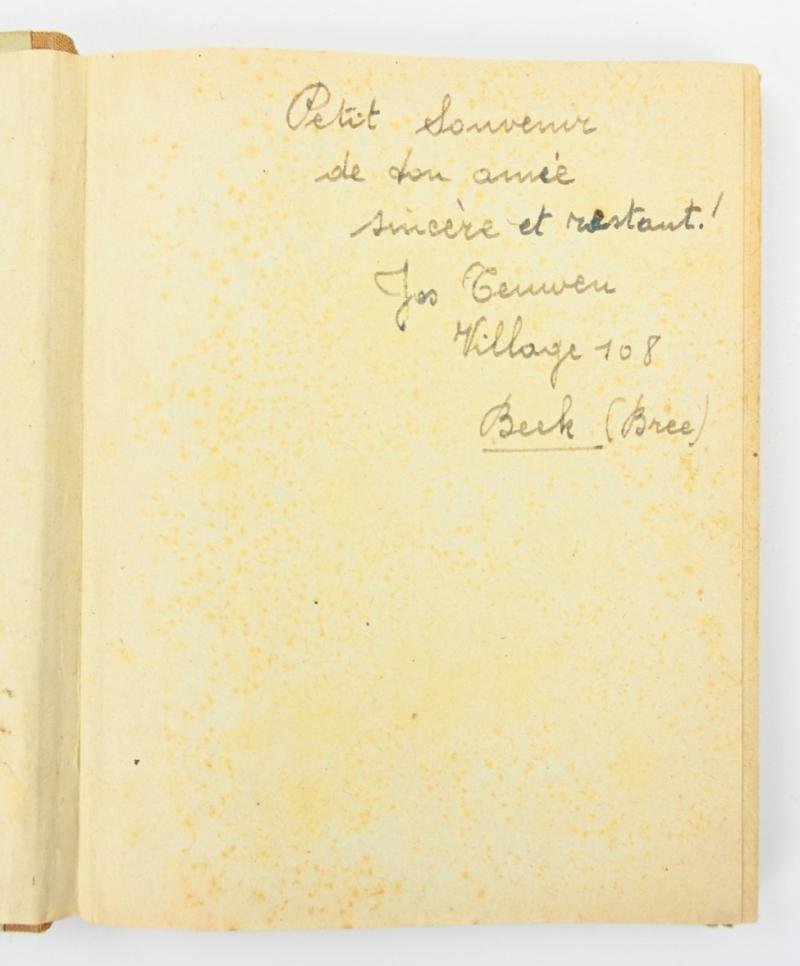 Petit Souvenir
de ton amie
sincère et restant!
Jos Teuwen
Village 108
Beek (Bree)